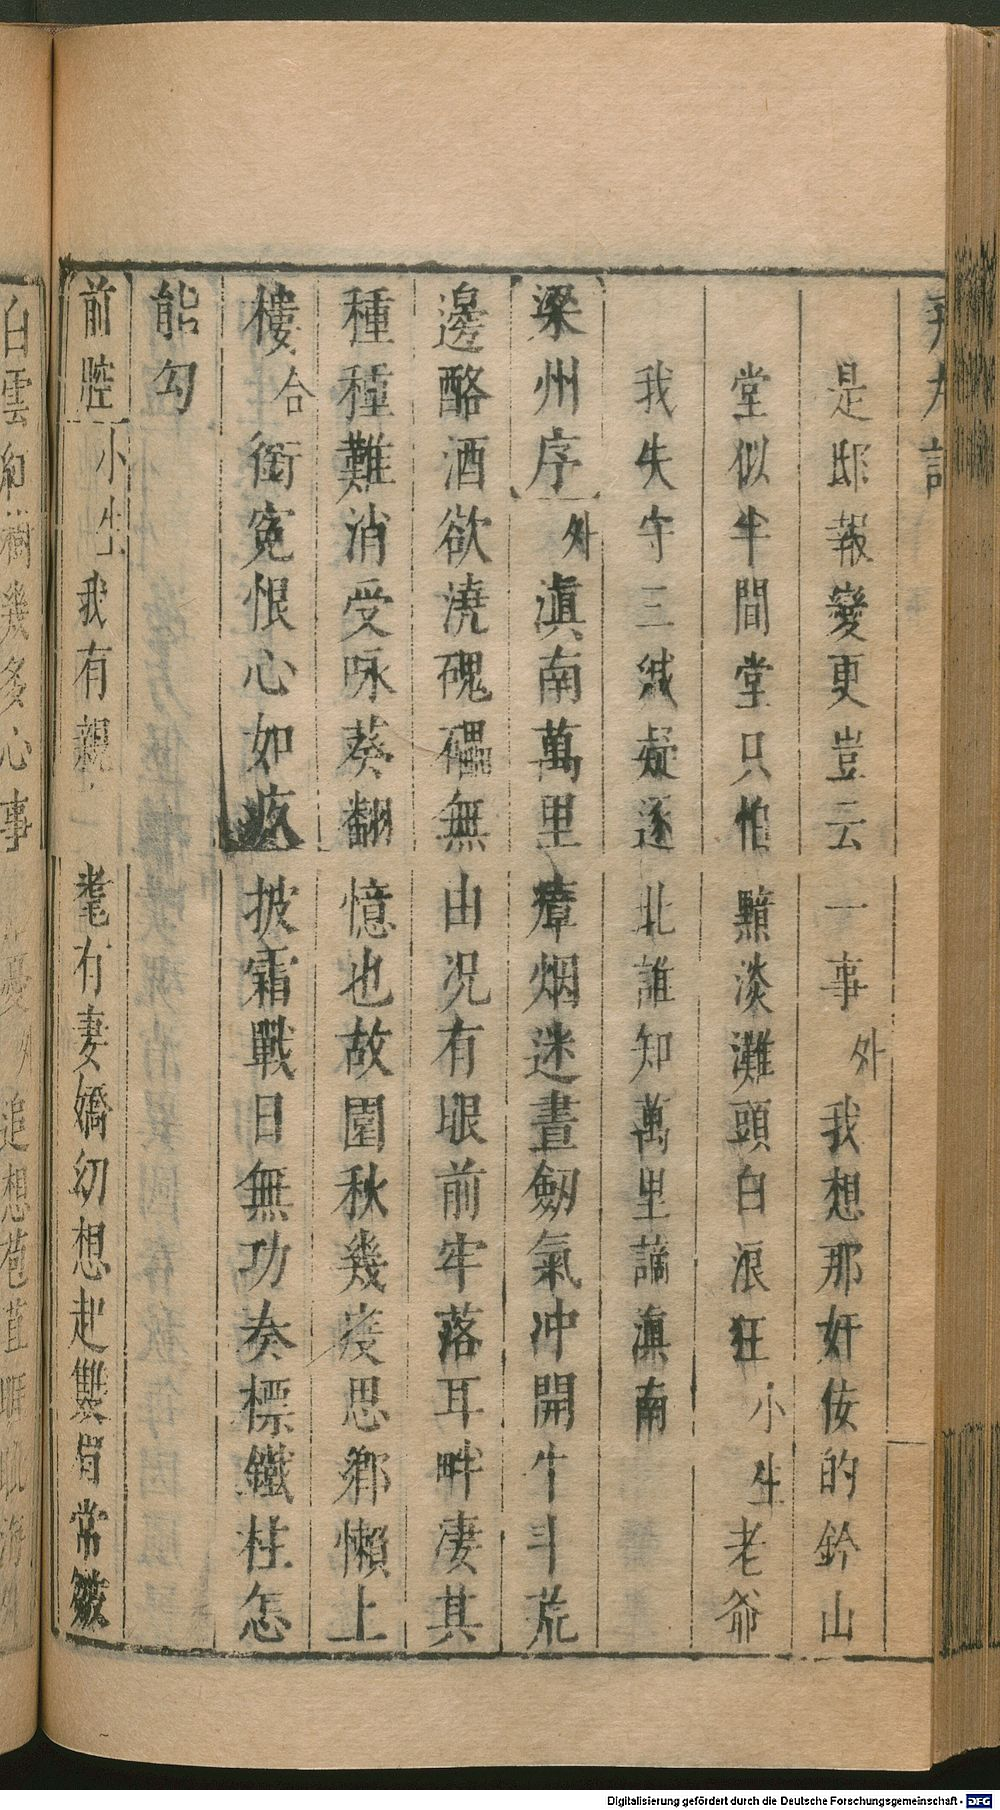 是邸報變更豈云一事外我想那奸佞的鈐山
堂似半間堂只怕黯淡灘頭白浪狂小生老爺
我失守三緘疑逐北誰知萬里謫滇南
梁州序外滇南萬里瘴烟迷晝劒氣冲開牛斗荒
邊酪酒欲澆磈礧無由况有眼前牢落耳畔淒其
種種難消受咏葵翻憶也故園秋幾度思鄉懶上
樓合銜寃恨心如疚披霜戰日無功奏標鐵柱怎
能勾
前腔小生我有親耄有妻嬌幼想起雙眉常皺
白雲紅樹幾多心事追想苞苴
Digitalisierung gefördert durch die Deutsche Forschungsgemeinschaft - DFG